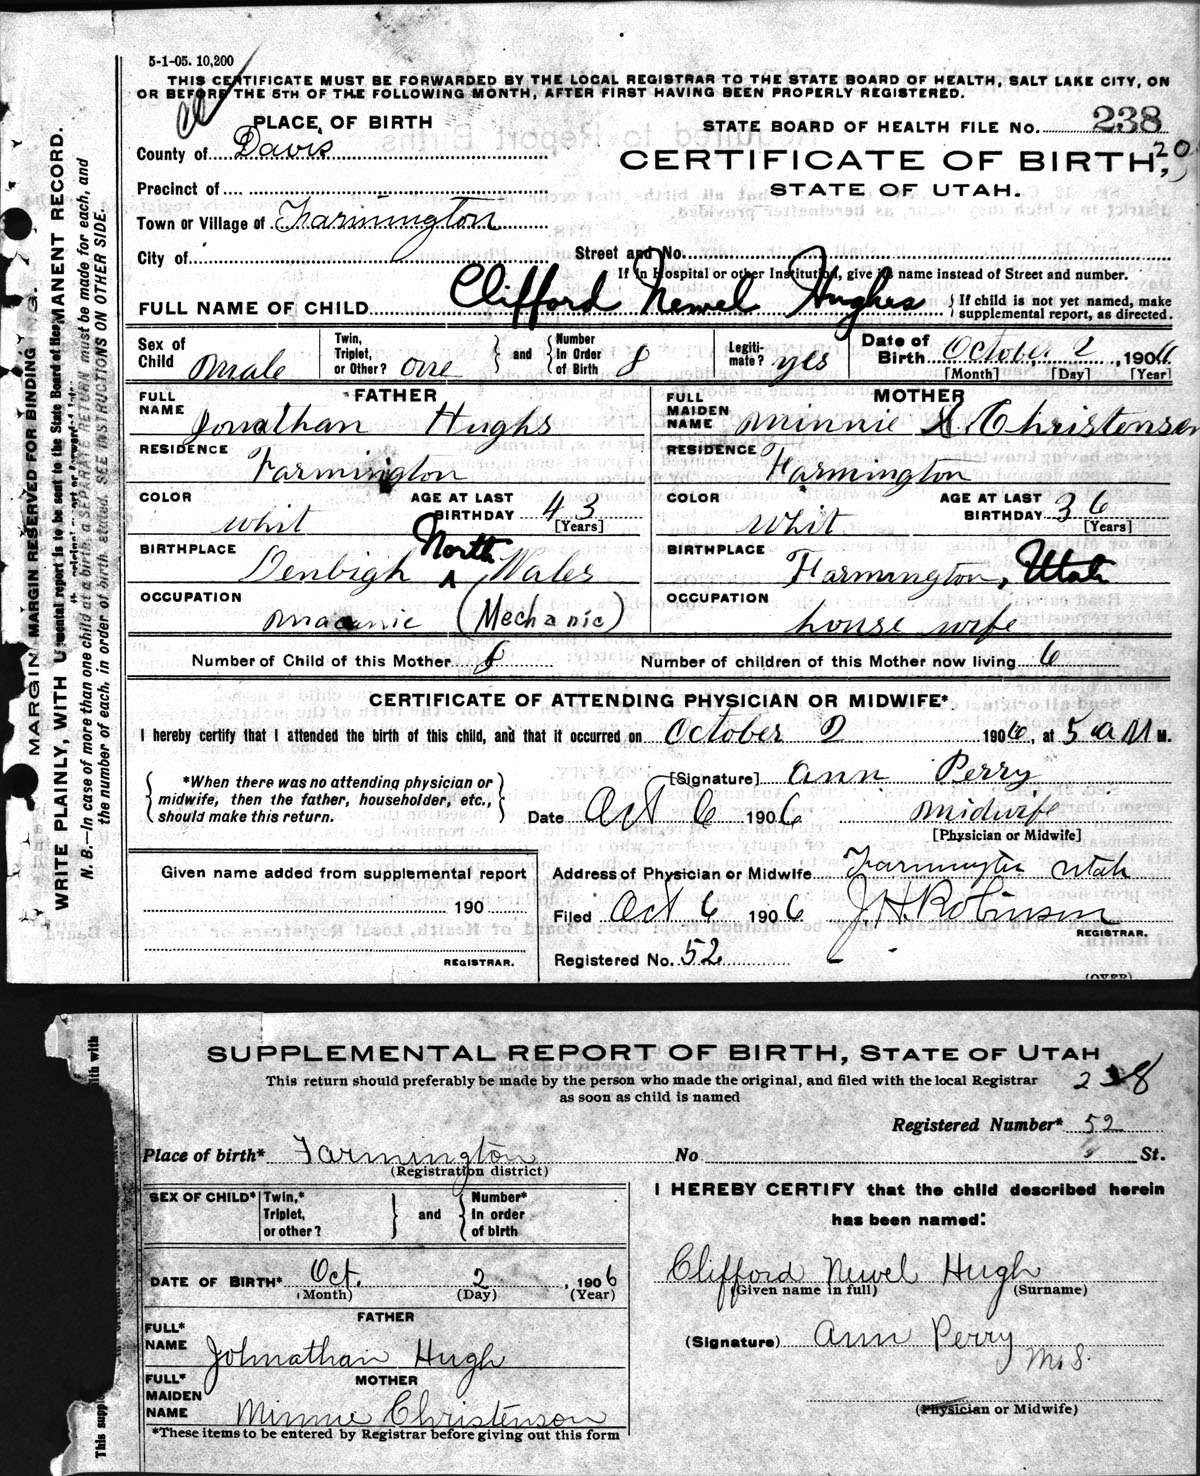 5-1-05. 10,200
THIS CERTIFICATE MUST BE FORWARDED BY THE LOCAL REGISTRAR TO THE STATE BOARD OF HEALTH, SALT LAKE CITY, ON
OR BEFORE THE 5TH OF THE FOLLOWING MONTH, AFTER FIRST HAVING BEEN PROPERLY REGISTERED.
PLACE OF BIRTH
STATE BOARD OF HEALTH FILE NO. 238
County of Davis
CERTIFICATE OF BIRTH,
20
Precinct of
STATE OF UTAH.
Town or Village of Farmington
City of
Street and No.
If in Hospital or other Institution, give its name instead of Street and number.
FULL NAME OF CHILD Clifford Newel Hughes
If child is not yet named, make
supplemental report, as directed.
Sex of Child male
Twin, Triplet, or Other? one
and
Number In Order of Birth 8
Legiti- mate? yes
Date of Birth October 2, 1906
[Month] [Day] [Year]
FATHER
MOTHER
FULL NAME Jonathan Hughs
FULL MAIDEN NAME Minnie Christensen
RESIDENCE Farmington
RESIDENCE Farmington
COLOR whit
AGE AT LAST BIRTHDAY 43
[Years]
COLOR Whit
AGE AT LAST BIRTHDAY 36
[Years]
BIRTHPLACE Denbigh North Wales
BIRTHPLACE Farmington, Utah
OCCUPATION macanic (Mechanic)
OCCUPATION house wife
Number of Child of this Mother 8
Number of children of this Mother now living 6
CERTIFICATE OF ATTENDING PHYSICIAN OR MIDWIFE*
I hereby certify that I attended the birth of this child, and that it occurred on October 2 1906, at 5 a M M.
*When there was no attending physician or
midwife, then the father, householder, etc.,
should make this return.
[Signature] ann Perry
Date Oct 6 1906
midwife
[Physician or Midwife]
Given name added from supplemental report
190
REGISTRAR.
Address of Physician or Midwife Farmington Utah
Filed Oct 6 1906 J. H. Robinson
REGISTRAR.
Registered No. 52
(OVER)
MARGIN RESERVED FOR BINDING
WRITE PLAINLY, WITH
MANENT RECORD.
N. B.—In case of more than one child at a birth, a SEPARATE RETURN must be made for each, and
the number of each, in order of birth, stated. SEE INSTRUCTIONS ON OTHER SIDE.
SUPPLEMENTAL REPORT OF BIRTH, STATE OF UTAH
This return should preferably be made by the person who made the original, and filed with the local Registrar
as soon as child is named
238
Registered Number* 52
Place of birth* Farmington
(Registration district)
No
St.
SEX OF CHILD*
Twin,* Triplet, or other?
and
Number* In order of birth
I HEREBY CERTIFY that the child described herein
has been named:
DATE OF BIRTH* Oct. 2, 1906
(Month) (Day) (Year)
Clifford Newel Hugh
(Given name in full) (Surname)
FATHER
FULL* NAME Johnathan Hugh
(Signature) Ann Perry
Mrs.
MOTHER
FULL* MAIDEN NAME Minnie Christenson
(Physician or Midwife)
*These items to be entered by Registrar before giving out this form
ith with
This supple